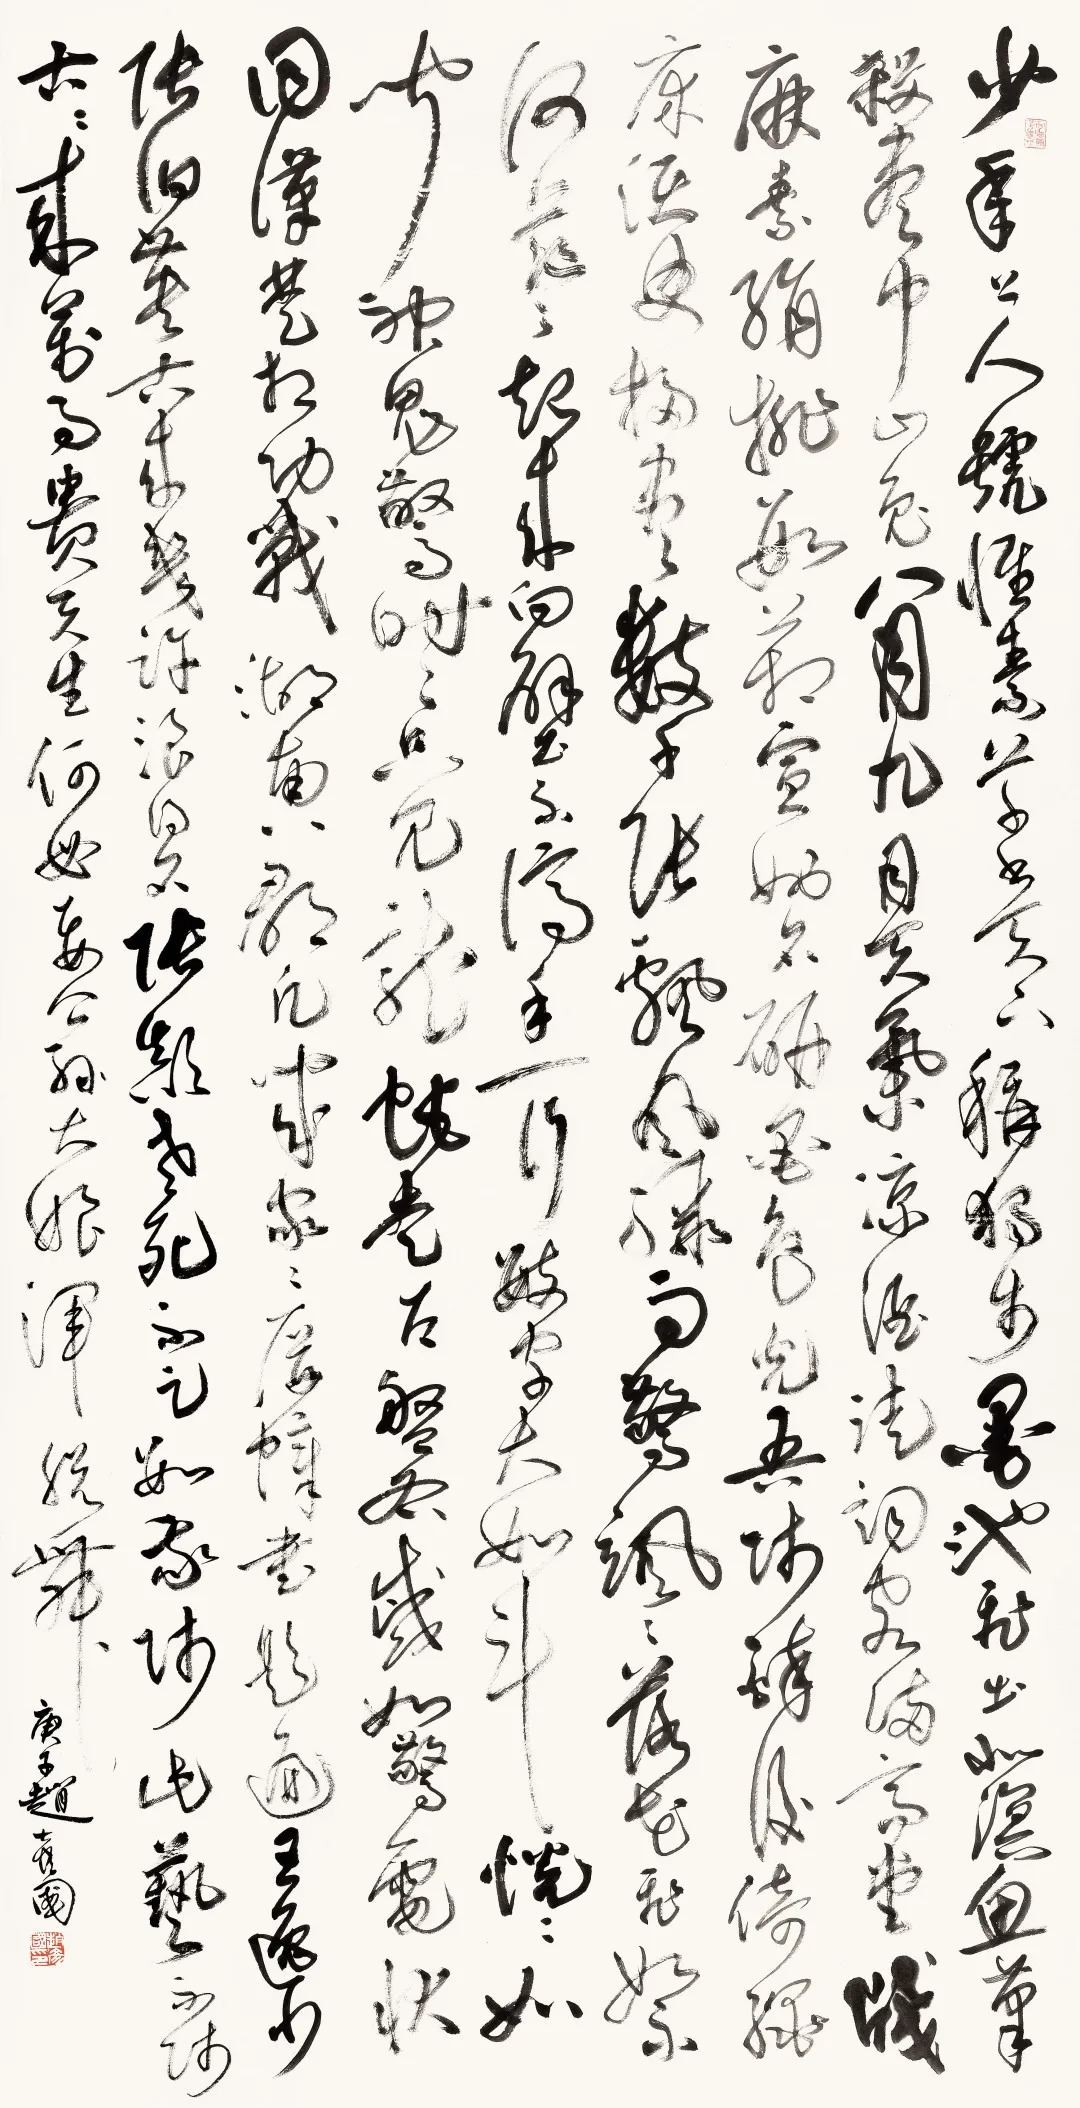 少年上人號懷素草書天下稱獨步墨池飛出北溟魚筆
殺盡中山兔八月九月天氣涼酒徒詞客滿高堂牋
麻素絹排數箱宣州石硯墨色光吾師醉後倚繩
床須臾掃盡數千張飄風驟雨驚颯〻落花飛絮
何茫〻起來向壁不停手一行數字大如斗恍〻如
聞神鬼驚時〻只見龍蛇走左盤右蹙如驚電狀
同漢楚相攻戰湖南七郡凡幾家〻屏幛書題遍王逸少
張伯英古來幾許浪得名張顛老死不足數我師此藝不師
古〻來萬事貴天生何必要公孫大娘渾脫舞
庚子趙國